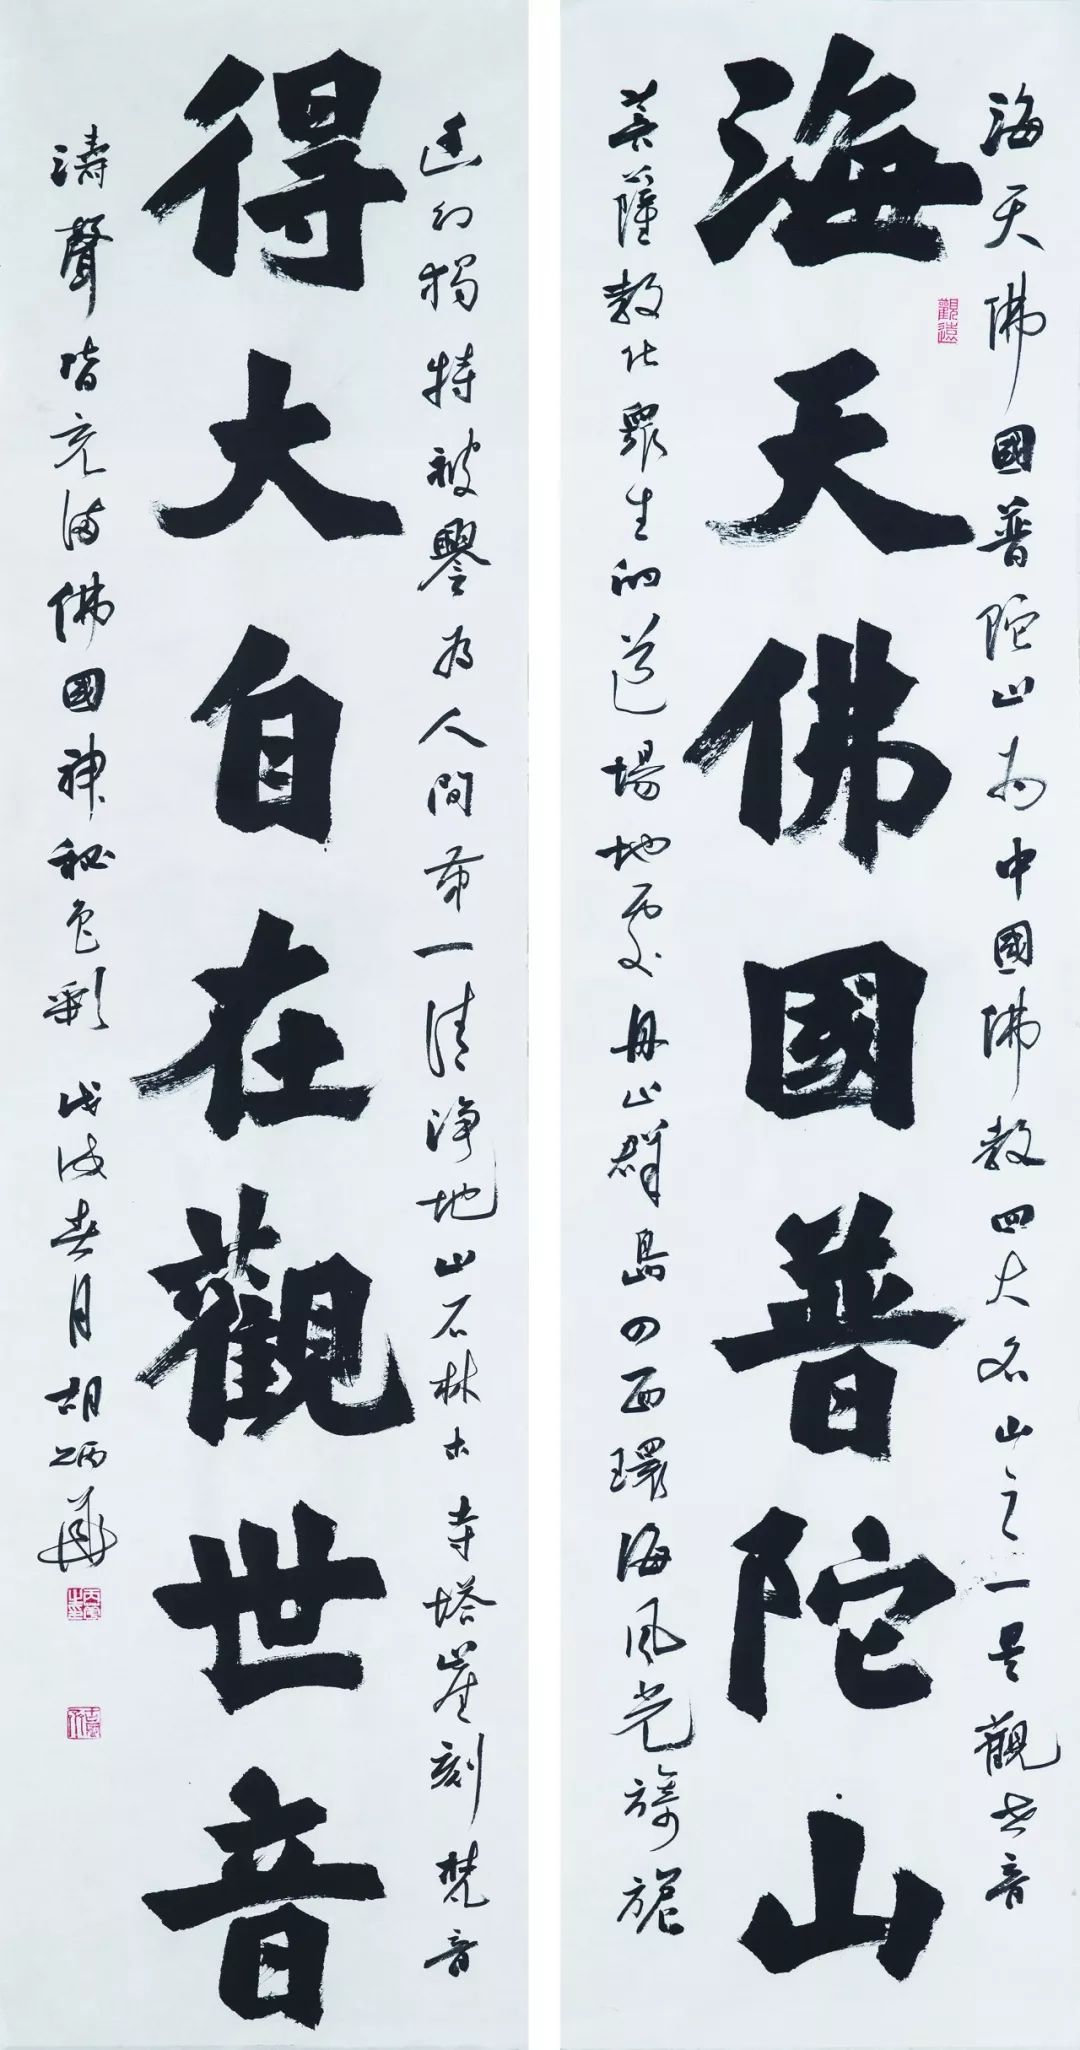 海天佛國普陀山為中國佛教四大名山之一是觀世音
觀遠
海天佛國普陀山
菩薩教化眾生的道場地處舟山群島四面環海風光旖旎
幽幻獨特被譽為人間第一清淨地山石林木寺塔崖刻梵音
得大自在觀世音
濤聲皆充滿佛國神秘色彩 戊戌春月胡炳華